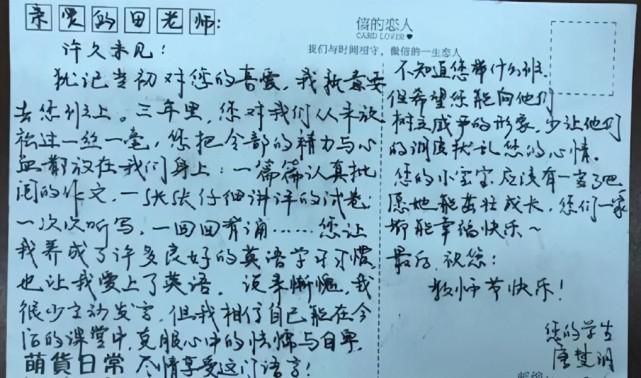 亲爱的田老师:
许久未见!
犹记当初对您的喜爱,我执意要
去您班上。三年里,您对我们从未放
松过一丝一毫,您把全部的精力与心
血都放在我们身上:一篇篇认真批
阅的作文,一张张仔细讲评的试卷
一次次听写,一回回背诵……您让
我养成了许多良好的英语学习习惯,
也让我爱上了英语。说来惭愧,我
很少主动发言,但我相信自己能在今
后的课堂中,克服心中的怯懦与自卑,
尽情享受这门语言!
萌貨日常
信的恋人
CARD LOVER
我们与时间相守,做信的一生恋人
不知道您带什么班,
但希望您能向他们
树立威严的形象,少让他们
的调皮扰乱您的心情。
您的小宝宝应该有一岁了吧,
愿她能茁壮成长,您们一家
都能幸福快乐~
最后,祝您:
教师节快乐!
您的学生
唐楚
邮编